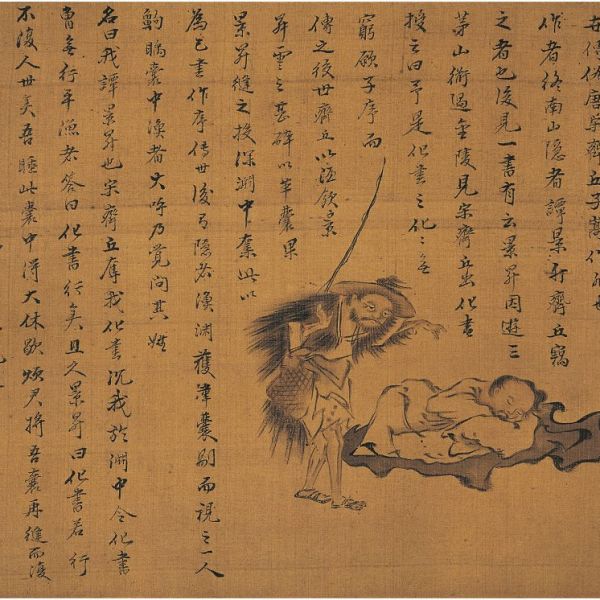 世傳偽唐宋齊丘子
作者終南山隱者譚景升齊丘竊
之者也後見一書有云景昇因遊三
茅山術過金陵見宋齊丘出化書
授之曰予是化書之化之無
窮願子序而
傳之後世齊丘以酒飲景
昇雪之甚醉以革囊裹
景昇縫之投深淵中奪此以
為己書作序傳世後有隱者漁淵獲革囊剖而視之一人
鼾睡囊中漁者大呼乃覺問其姓
名曰我譚景昇也宋齊丘奪我化書沉我於淵中今化書
曾無行乎漁者答曰化書行矣且久景昇曰化書若行
不復人世矣吾睡此囊中得大休歇煩君將吾囊再縫而復